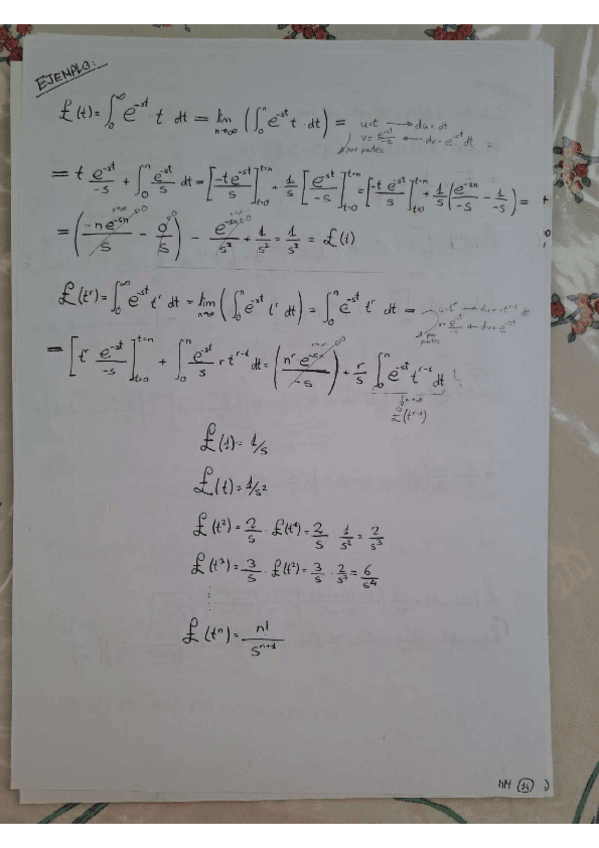 EJEMPLO:
£(t) = ∫₀^∞ e^{-st} · t dt = lim_{n→∞} (∫₀^n e^{-st} t · dt) = u=t → du=dt
por partes v = e^{-st}/-s ← dv = e^{-st} dt
= t e^{-st}/-s + ∫₀^n e^{-st}/s dt = [-t e^{-st}/s]_{t=0}^{t=n} + 1/s [e^{-st}/-s]_{t=0}^{t=n} = [-t e^{-st}/s]_{t=0}^{t=n} + 1/s (e^{-sn}/-s - 1/-s) =
= (-n e^{-sn}/s - 0/s) - e^{-sn}/s² + 1/s² = 1/s² = £(t)
£(t^r) = ∫₀^∞ e^{-st} t^r dt = lim_{n→∞} (∫₀^n e^{-st} t^r dt) = ∫₀^n e^{-st} t^r dt = u=t^r → du=r t^{r-1} dt
por partes v = e^{-st}/-s ← dv = e^{-st}
= [t^r e^{-st}/-s]_{t=0}^{t=n} + ∫₀^n e^{-st}/s r t^{r-1} dt = (n^r · e^{-sn}/-s) + r/s ∫₀^n e^{-st} t^{r-1} dt
↓ n→∞
£(t^{r-1})
£(1) = 1/s
£(t) = 1/s²
£(t²) = 2/s · £(t¹) = 2/s · 1/s² = 2/s³
£(t³) = 3/s · £(t²) = 3/s · 2/s³ = 6/s⁴
⋮
£(t^n) = n!/s^{n+1}